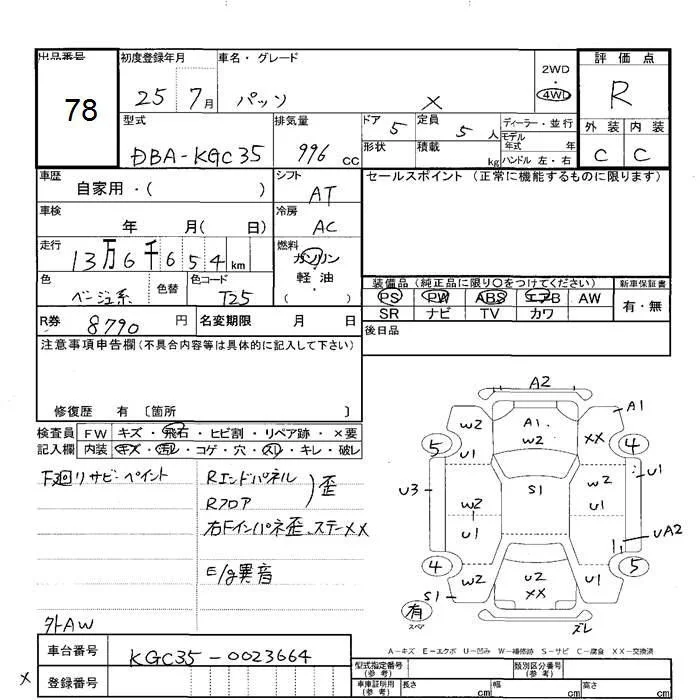 出品番号 初度登録年月 車名・グレード 評価点
78 25 7月 パッソ X 2WD 4WD R
型式 排気量 ドア 5 定員 5人 ディーラー・並行 外装 内装
DBA-KGC35 996cc 形状 積載 kg モデル年式 年 C C
ハンドル 左・右
車歴 自家用・( ) シフト AT セールスポイント(正常に機能するものに限ります)
車検 年 月( 日) 冷房 AC
走行 13万6千654km 燃料 ガソリン
軽油
( )
色 ベージュ系 色替 色コード T25
装備品(純正品に限り○をつけてください) 新車保証書
PS PW ABS エアB AW 有・無
SR ナビ TV カワ
R券 8790円 名変期限 月 日 後日品
注意事項申告欄(不具合内容等は具体的に記入して下さい)
修復歴 有 〔箇所 〕
検査員 FW キズ・飛石・ヒビ割・リペア跡・×要
記入欄 内装 キズ・汚レ・コゲ・穴・スレ・キレ・破レ
F廻リサビ・ペイント Rエンドパネル
Rフロア 歪
右Fインパネ歪、ステーXX
E/g異音
外AW
A2
A1
W2 A1 W2 XX
5 4
U3 W2 S1 W2 U1
U1 U1 UA2
4 5
W2 U2 XX U1
S1
有 スペア ズレ
A-キズ E-エクボ U-凹み W-補修跡 S-サビ C-腐食 XX-交換済
車台番号 KGC35-0023664
型式指定番号(参考) 類別区分番号(参考)
X 登録番号 車庫証明用(参考) 長さ cm 幅 cm 高さ cm